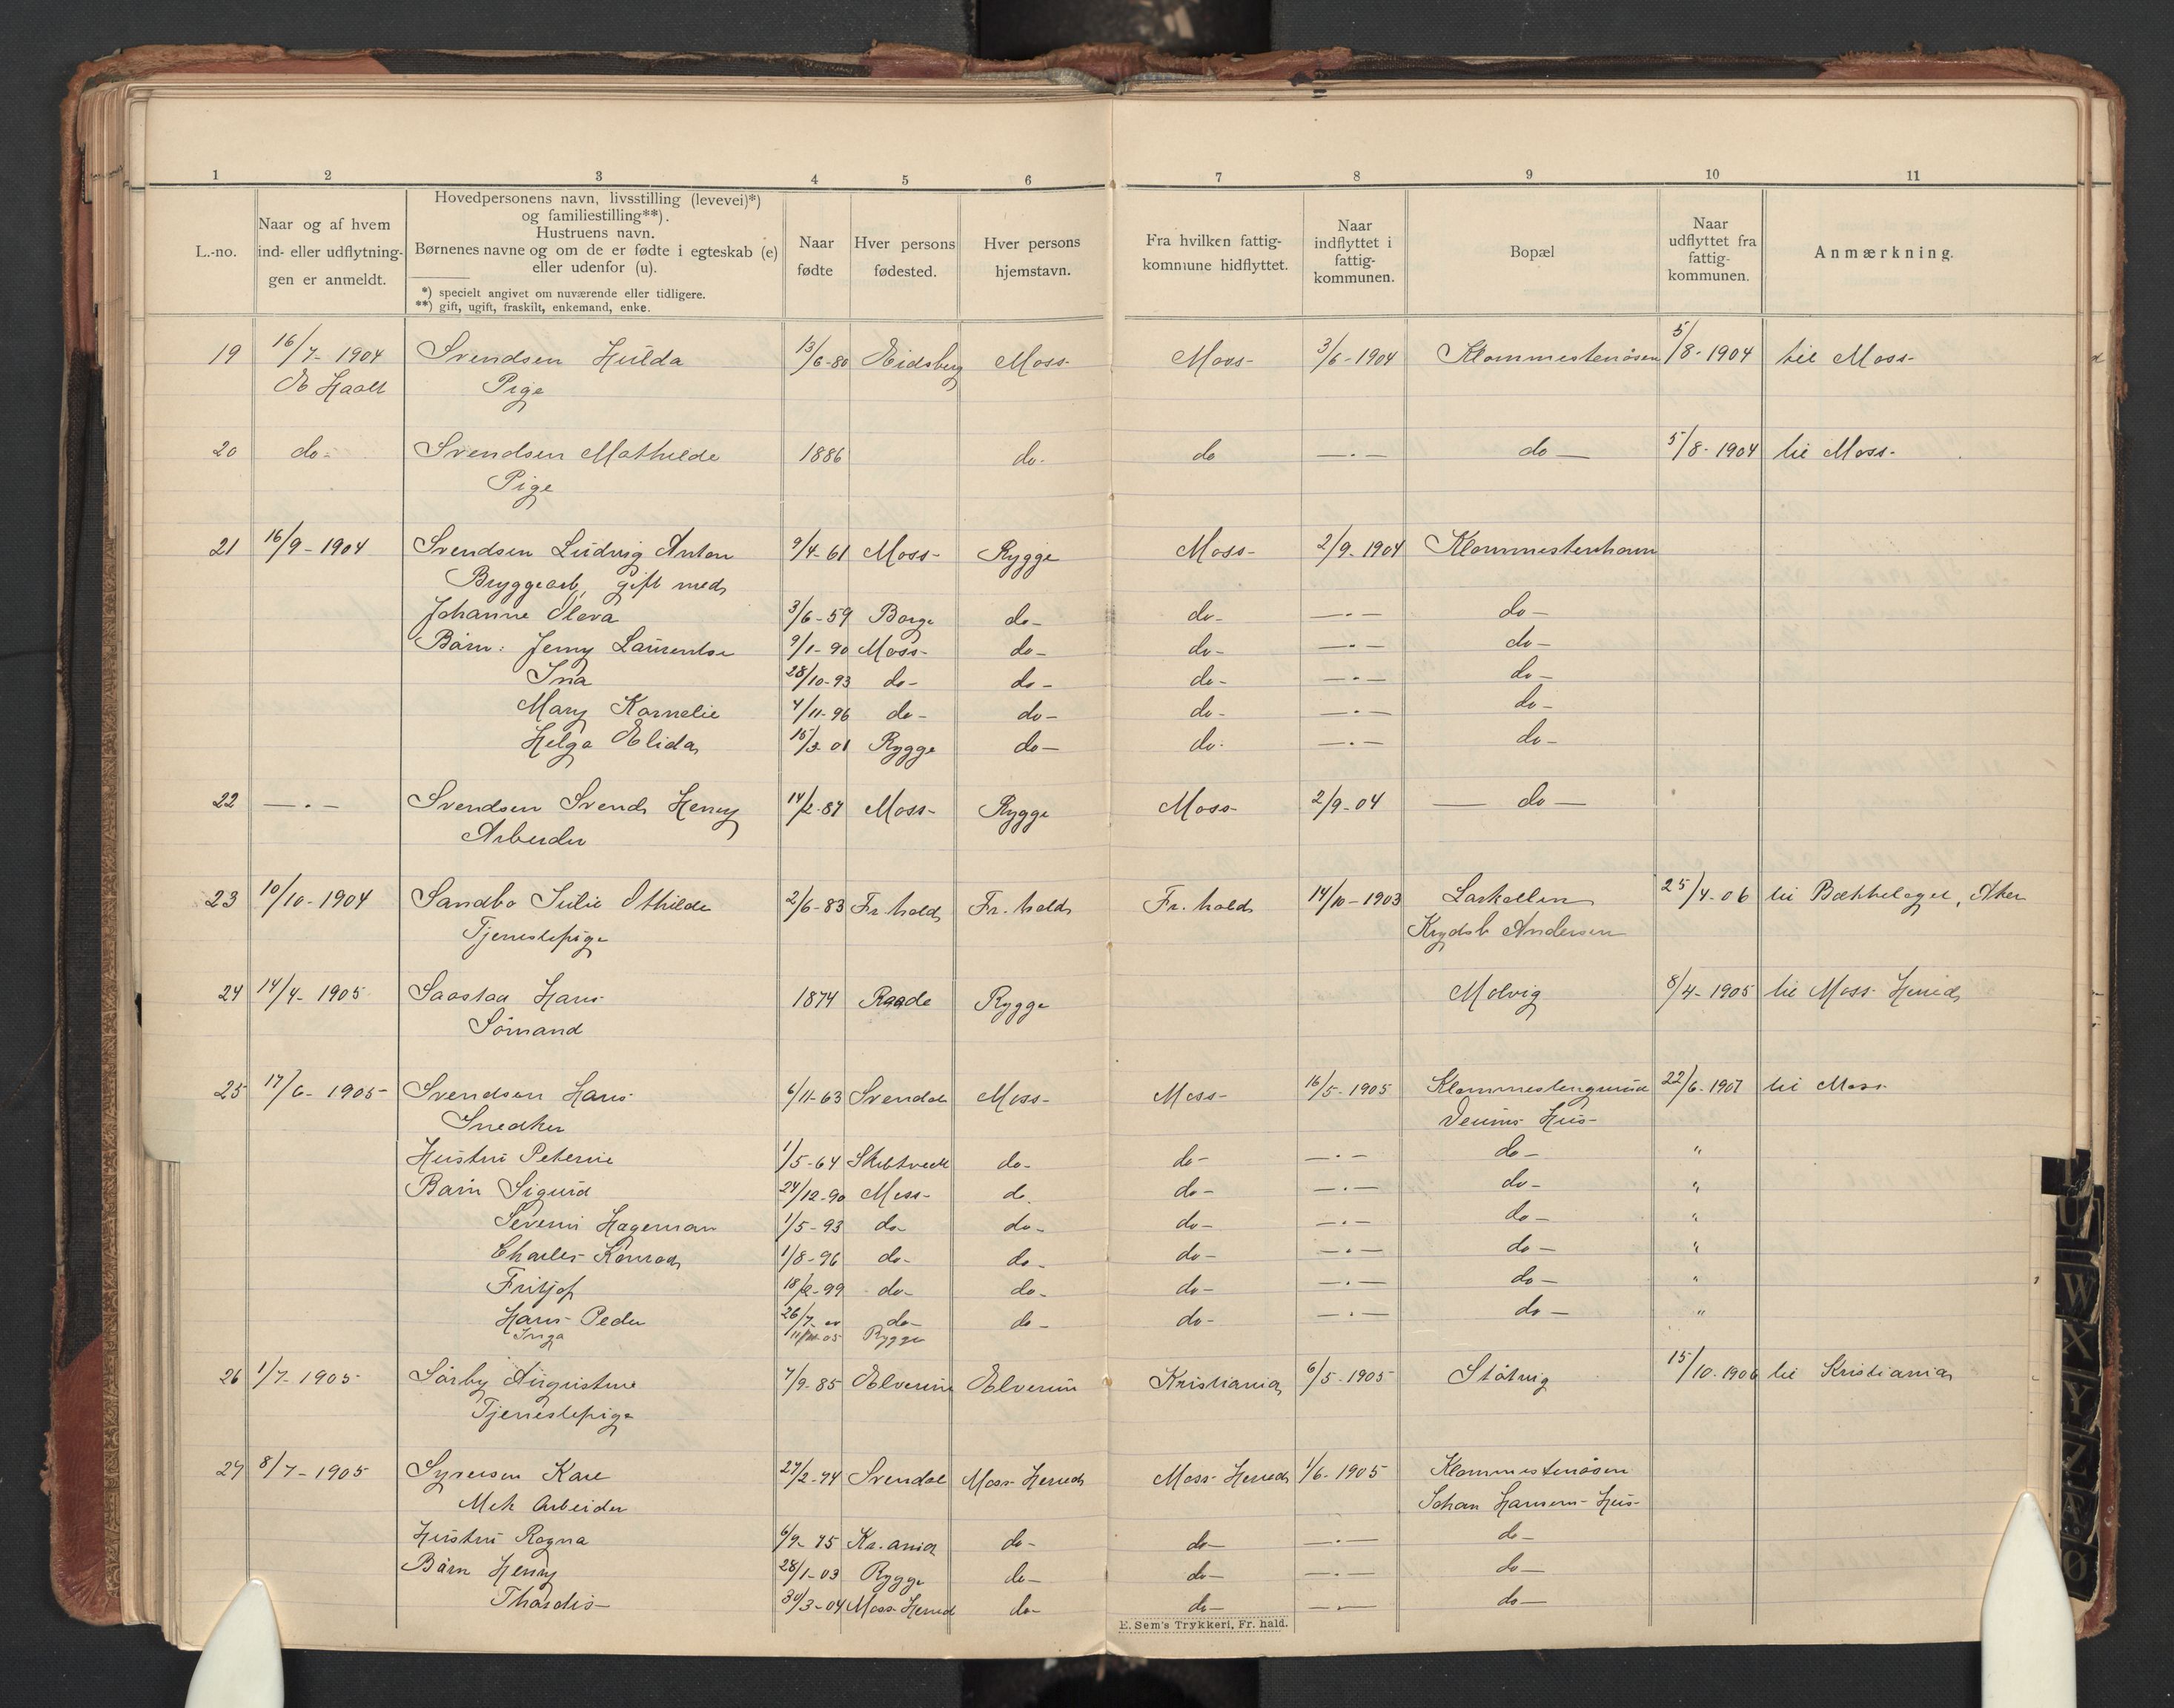 1 2 3 4 5 6 7 8 9 10 11
L.-no.
Naar og af hvem
ind- eller udflytnin-
gen er anmeldt.
Hovedpersonens navn, livsstilling (levevei)*)
og familiestilling**).
Hustruens navn.
Børnenes navne og om de er fødte i egteskab (e)
eller udenfor (u).
*) specielt angivet om nuværende eller tidligere.
**) gift, ugift, fraskilt, enkemand, enke.
Naar
fødte
Hver persons
fødested.
Hver persons
hjemstavn.
Fra hvilken fattig-
kommune hidflyttet.
Naar
indflyttet i
fattig-
kommunen.
Bopæl
Naar
udflyttet fra
fattig-
kommunen.
Anmærkning.
19 16/7-1904 Svendsen Hulda 13/6-80 Eidsberg Moss Moss 3/6-1904 Klommestenåsen 5/8-1904 til Moss
Pige
20 do- Svendsen Mathilde 1886 do- do —·— do — 5/8-1904 til Moss-
Pige
21 16/9-1904 Svendsen Ludvig Anton 9/4-61 Moss- Rygge Moss- 2/9-1904 Klommestenhavn
Bryggearb, gift med
Johanne Oleva 3/6-59 Borge do- do- —·— do-
Børn: Jenny Laurentse 9/1-90 Moss- do- do- —·— do-
Ina 28/10-93 do- do- do- —·— do-
Mary Kornelie 4/11-96 do- do- do- —·— do-
Helga Elida 15/3-01 Rygge do- do- —·— do-
22 —·— Svendsen Svend Henry 14/2-87 Moss- Rygge Moss- 2/9-04 — do —
Arbeider
23 10/10-1904 Sandbo Julie Othilde 2/6-83 Fr. hald Fr. hald Fr. hald 14/10-1903 Larkollen 25/4-06 til Bækkelaget, Aker
Tjenestepige Krydsb Andersen
24 14/4-1905 Saastad Hans 1874 Raade Rygge Molvig 8/4-1905 til Moss Herred
Sømand
25 17/6-1905 Svendsen Hans 6/11-63 Svendal Moss- Moss- 16/5-1905 Klommestengrund 22/6-1907 til Moss
Snedker Veums Hus-
Hustru Peterine 1/5-64 Skibtvedt do- do- —·— do- "
Børn Sigurd 24/12-90 Moss- do. do- —·— do- "
Severin Hageman 1/5-93 do- do- do- —·— do- "
Charles Konrad 1/8-96 do- do- do- —·— do- "
Fritjof 18/2-99 do- do- do- —·— do- "
Hans Peder 26/7- do- do- do- —·— do- "
Inga Rygge
26 1/7-1905 Sørby Augustine 7/9-85 Elverum Elverum Kristiania 6/5-1905 Støtvig 15/10-1906 til Kristiania
Tjenestepige
27 8/7-1905 Syversen Karl 27/2-74 Svendal Moss Herred Moss Herred 1/6-1905 Klommestenåsen
Mek Arbeider Johan Hansens Hus-
Hustru Ragna 6/9-75 Kr.ania do- do- —·— do-
Børn Henry 28/1-03 Rygge do- do- —·— do-
Thordis 30/3-04 Moss Herred do- do- —·— do-
E. Sem's Trykkeri, Fr. hald.
U
W
X
Y
Z
Æ
Ø